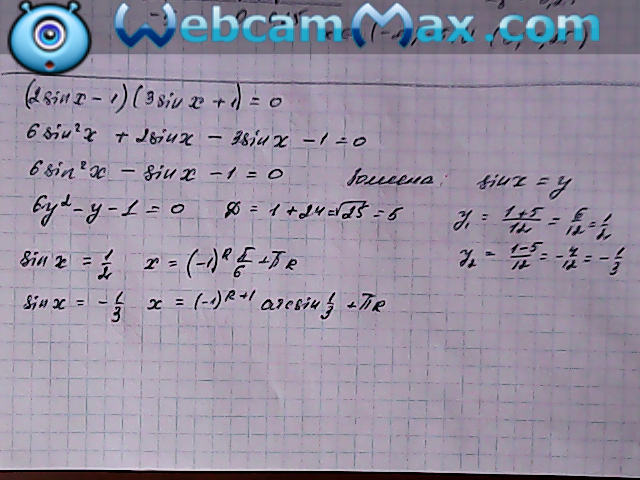 WebcamMax.com
(2sinx - 1)(3sinx + 1) = 0
6sin²x + 2sinx - 3sinx - 1 = 0
6sin²x - sinx - 1 = 0 Замена: sinx = y
6y² - y - 1 = 0 D = 1 + 24 = √25 = 5 y₁ = (1+5)/12 = 6/12 = 1/2
y₂ = (1-5)/12 = -4/12 = -1/3
sinx = 1/2 x = (-1)^k π/6 + πk
sinx = -1/3 x = (-1)^(k+1) arcsin 1/3 + πk